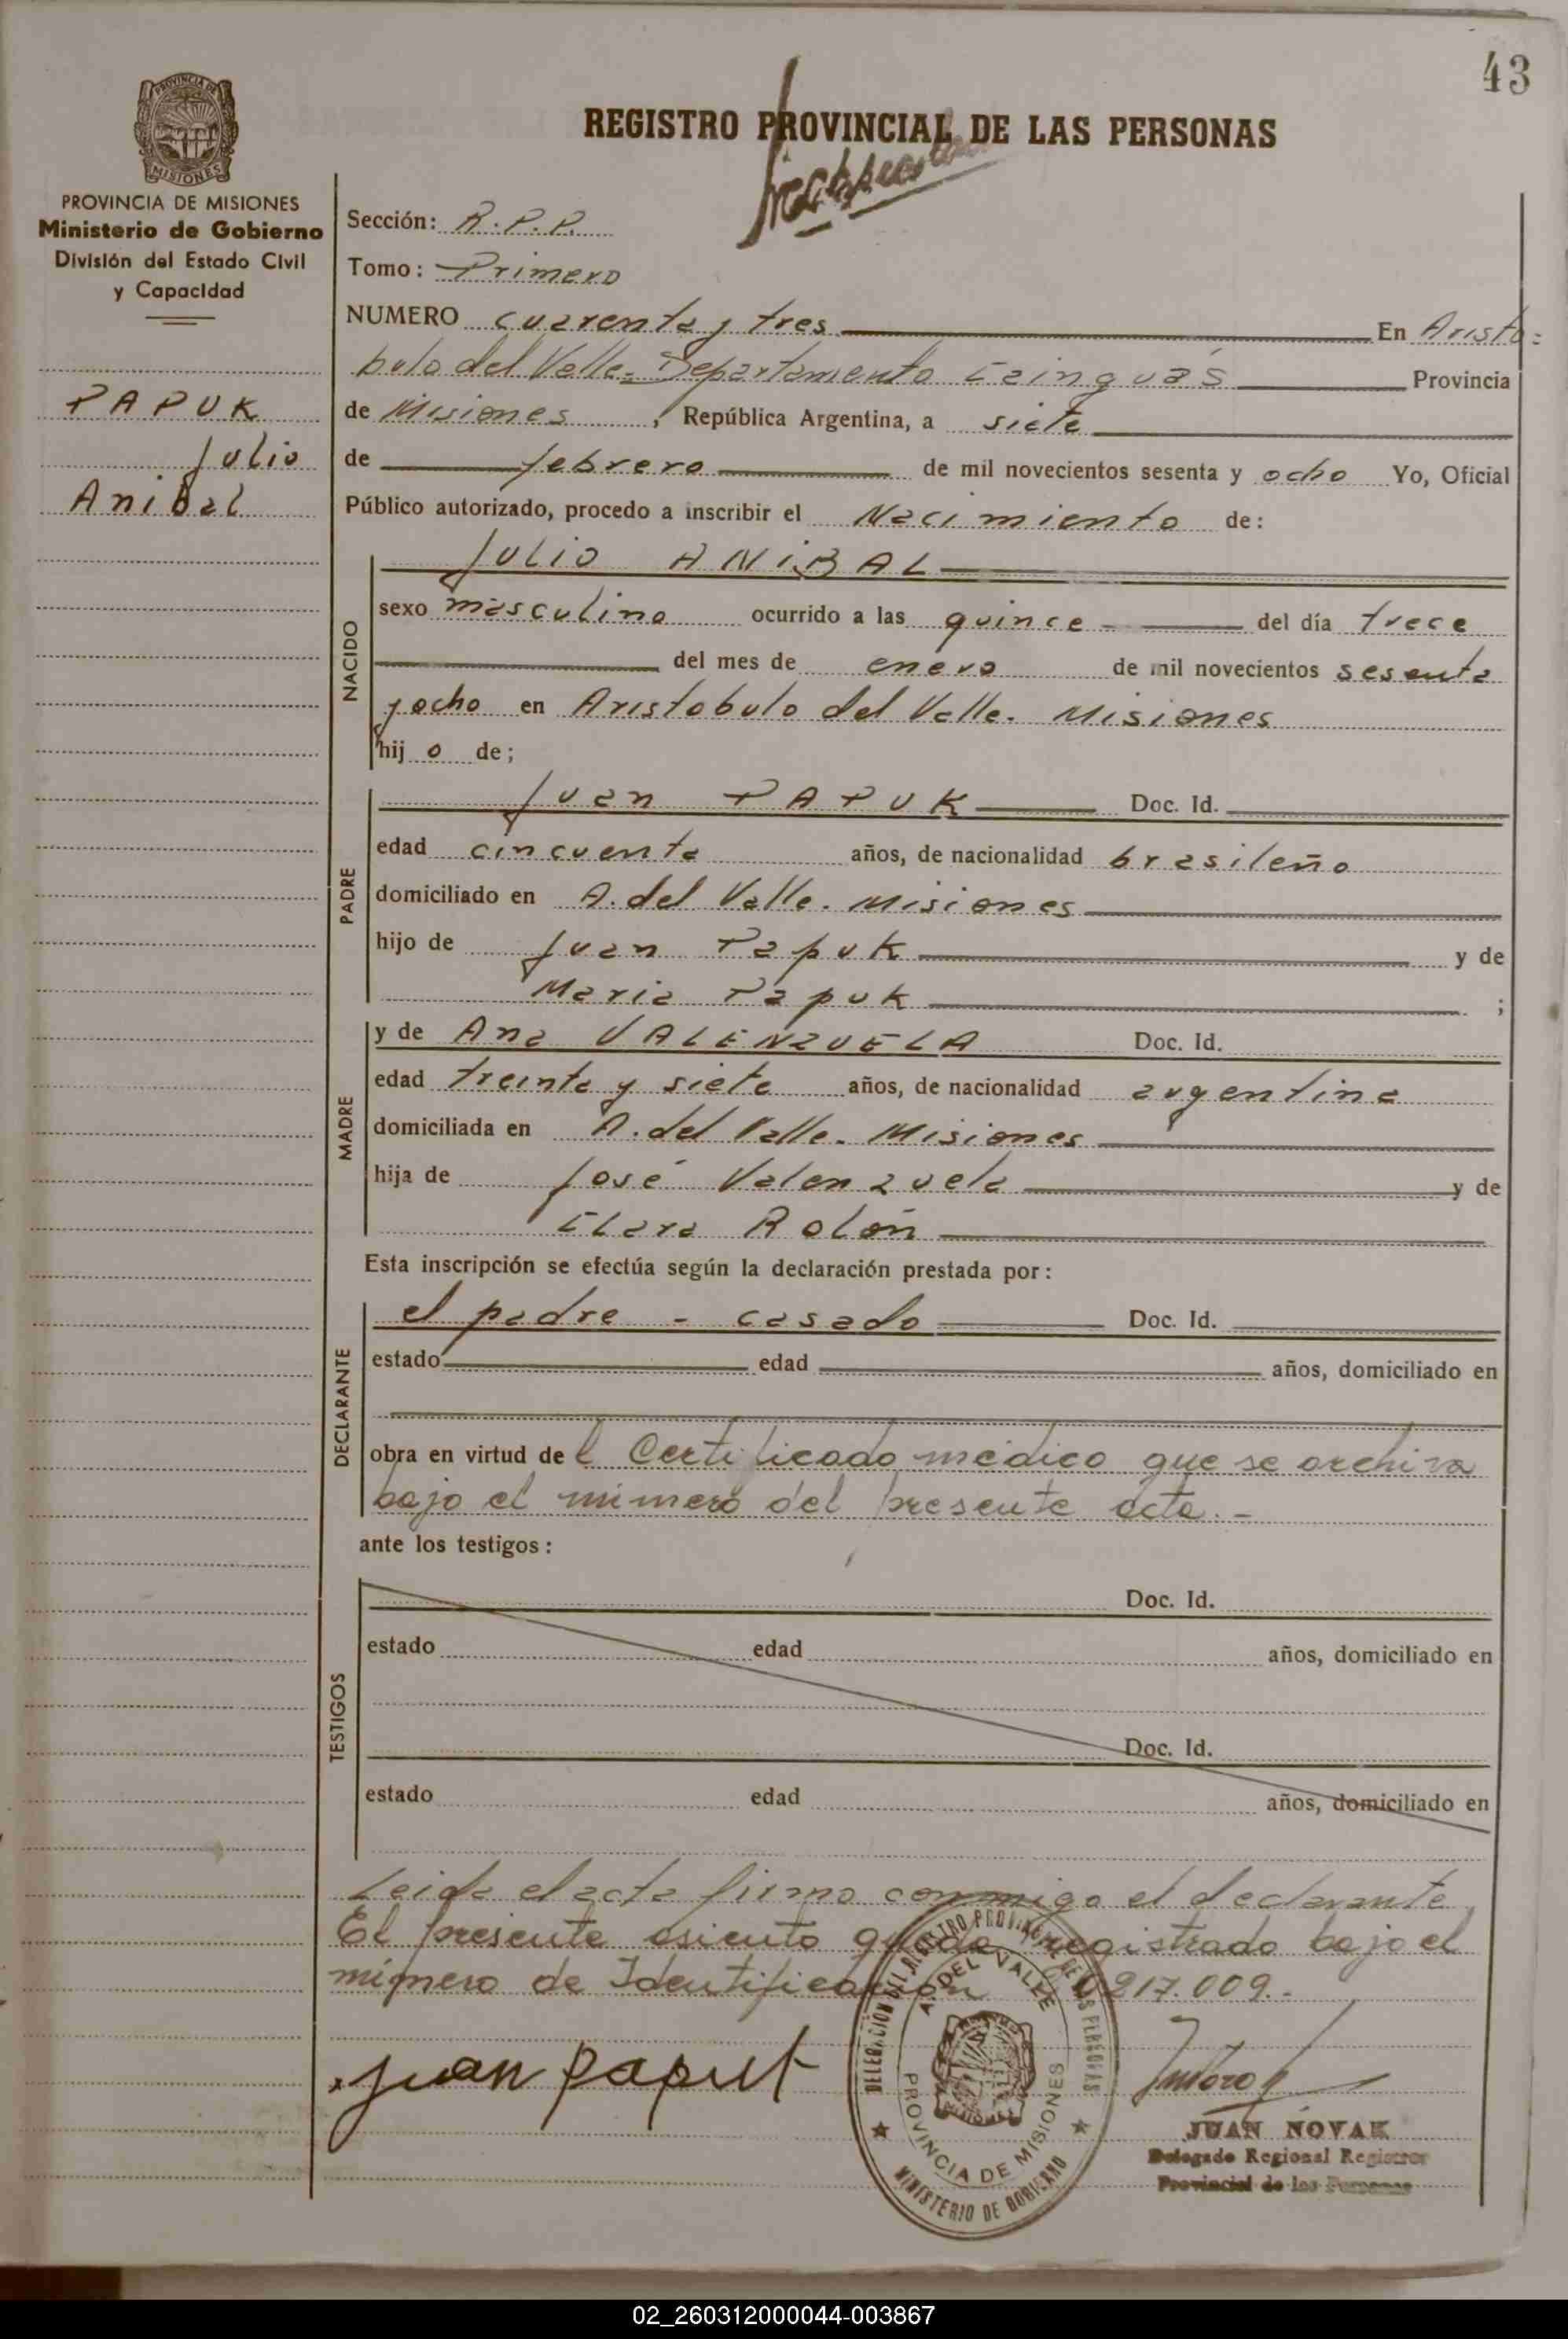 43
REGISTRO PROVINCIAL DE LAS PERSONAS
PROVINCIA DE MISIONES
Ministerio de Gobierno
División del Estado Civil
y Capacidad
PAPUK
Julio
Anibal
Sección: R.P.P.
Tomo: Primero
NUMERO cuarenta y tres En Aristo=
bulo del Valle= Departamento Cainguás Provincia
de Misiones, República Argentina, a siete
de febrero de mil novecientos sesenta y ocho Yo, Oficial
Público autorizado, procedo a inscribir el Nacimiento de:
Julio ANIBAL
NACIDO
sexo masculino ocurrido a las quince del día trece
del mes de enero de mil novecientos sesenta
y ocho en Aristobulo del Valle. Misiones
hijo de;
PADRE
Juan PAPUK Doc. Id.
edad cincuenta años, de nacionalidad brasileño
domiciliado en A. del Valle. Misiones
hijo de Juan Papuk y de
Maria Papuk ;
MADRE
y de Ana VALENZUELA Doc. Id.
edad treinta y siete años, de nacionalidad argentina
domiciliada en A. del Valle. Misiones
hija de José Valenzuela y de
Clara Rolón
Esta inscripción se efectúa según la declaración prestada por:
DECLARANTE
el padre - casado Doc. Id.
estado edad años, domiciliado en
obra en virtud del Certificado médico que se archiva
bajo el número del presente acta.-
ante los testigos:
TESTIGOS
Doc. Id.
estado edad años, domiciliado en
Doc. Id.
estado edad años, domiciliado en
Leida el acta firma conmigo el declarante
El presente asiento queda registrado bajo el
número de Identificación 217.009.-
Juan Papuk
DELEGACION DEL REGISTRO PROVINCIAL DE LAS PERSONAS
A. DEL VALLE
PROVINCIA DE MISIONES
MINISTERIO DE GOBIERNO
JUAN NOVAK
Delegado Regional Registro
Provincial de las Personas
02_260312000044-003867